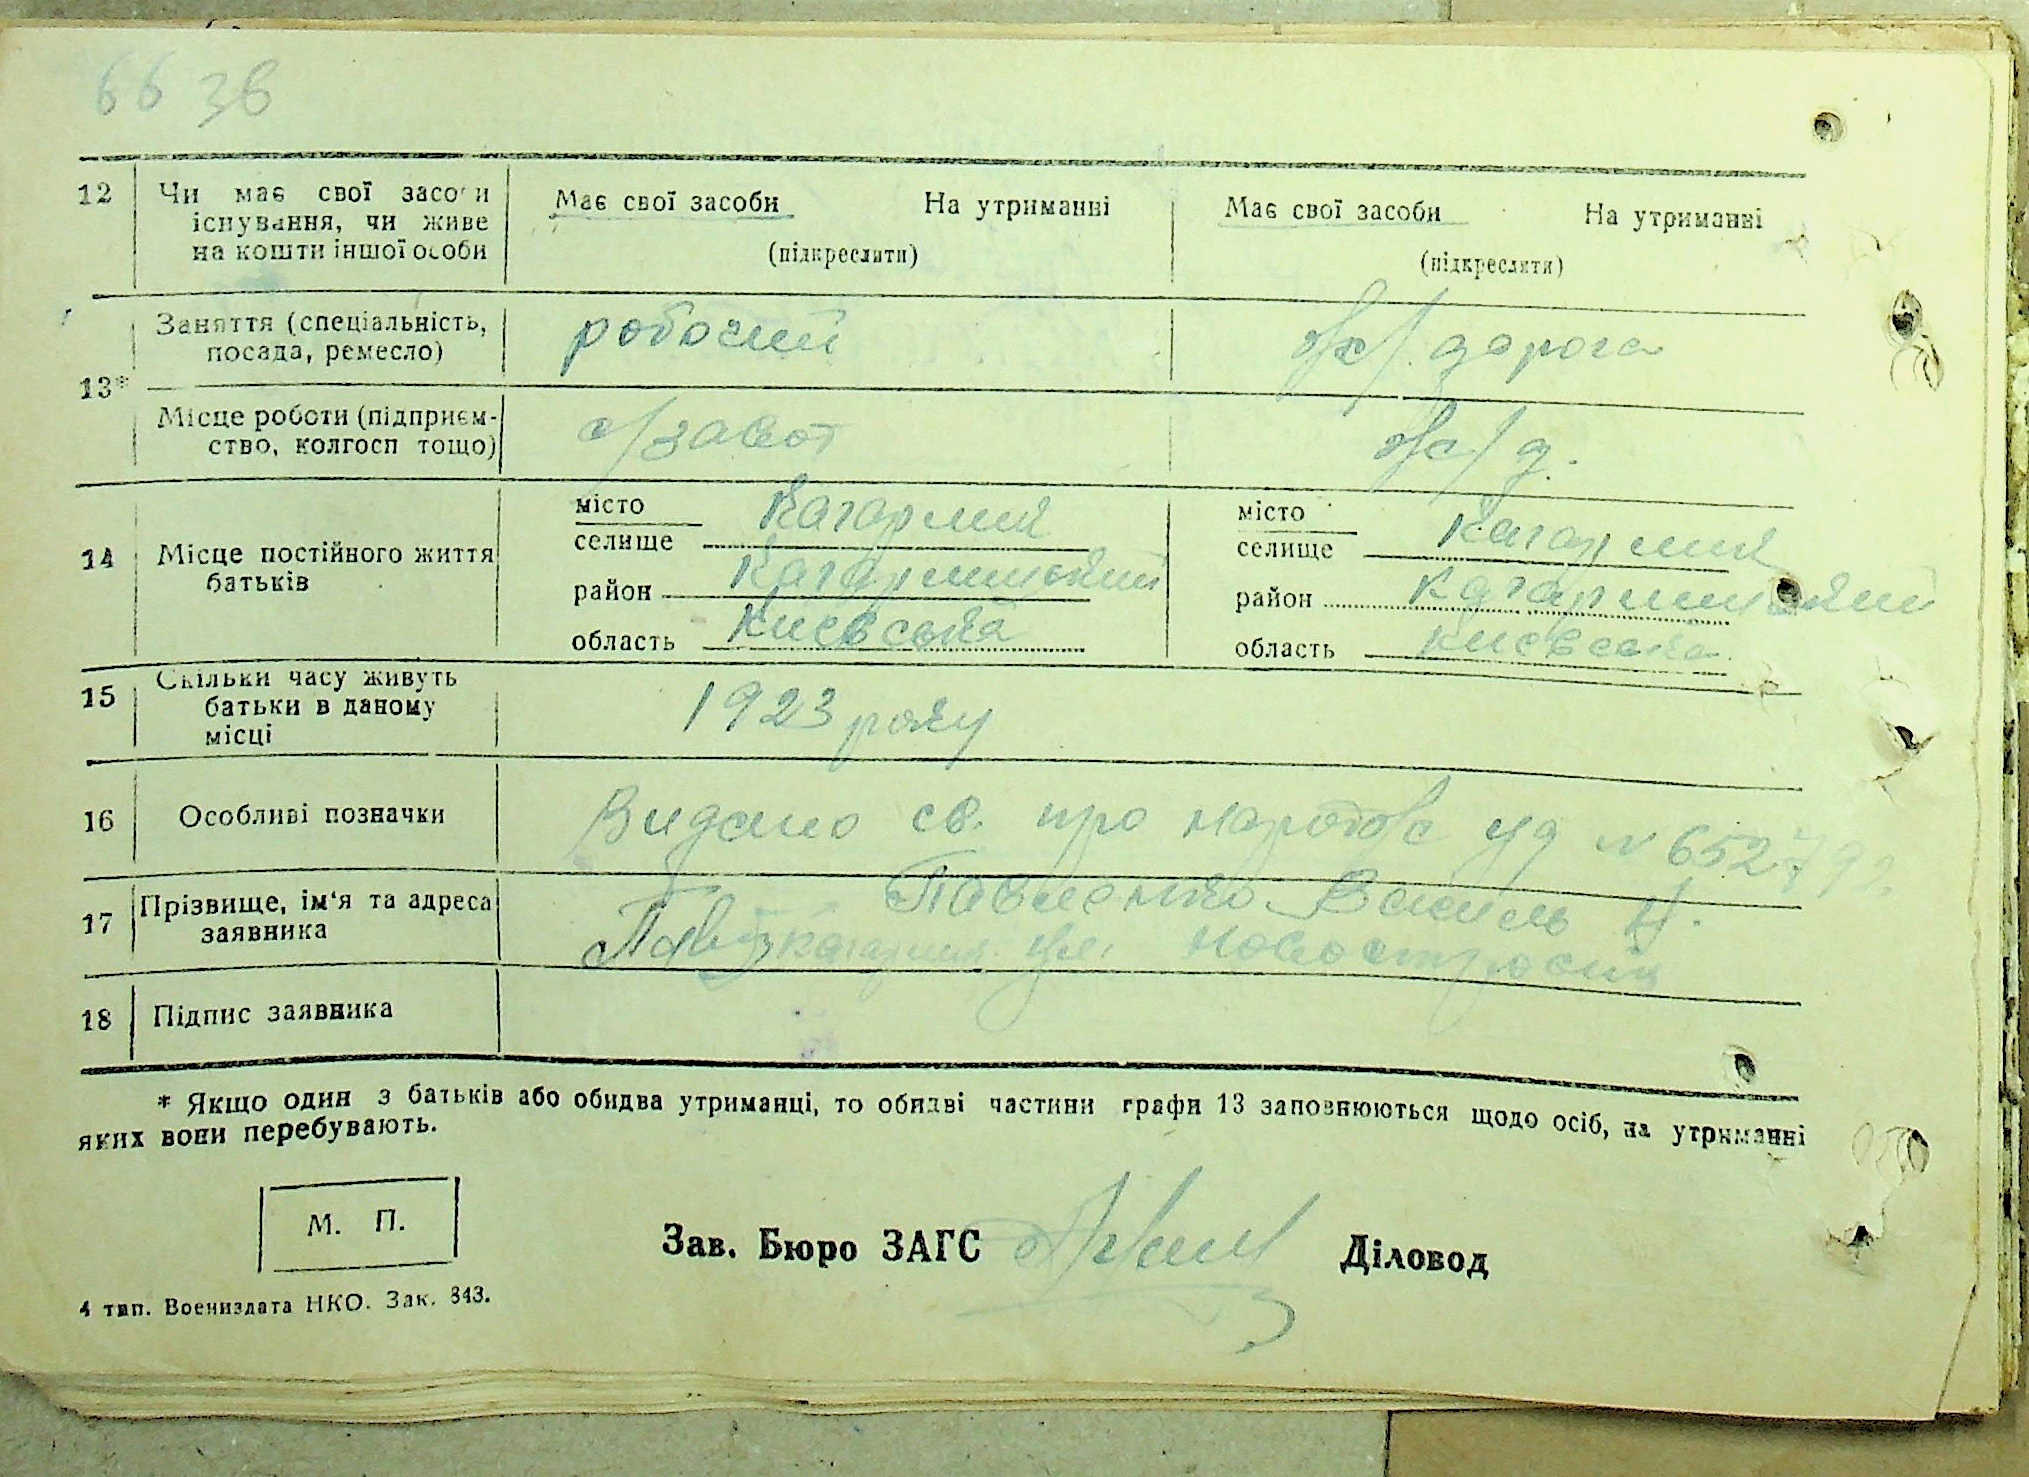 66 зв
12 Чи має свої засоби Має свої засоби На утриманні Має свої засоби На утриманні
існування, чи живе
на кошти іншої особи (підкреслити) (підкреслити)
Заняття (спеціальність, робочий дорога
посада, ремесло)
13*
Місце роботи (підприєм- с/завот
ство, колгосп тощо)
місто Кагарлик місто Кагарлик
селище селище
14 Місце постійного життя
батьків
район Кагарлицький район Кагарлицький
область Киевська область Киевська
15 Скільки часу живуть 1923 року
батьки в даному
місці
16 Особливі позначки Видано св. про народж УД № 652
17 Прізвище, ім'я та адреса Павленко Василь
заявника Кагарлик вул.
18 Підпис заявника
* Якщо один з батьків або обидва утриманці, то обидві частини графи 13 заповнюються щодо осіб, на утриманні
яких вони перебувають.
М. П.
Зав. Бюро ЗАГС Діловод
4 тип. Воениздата НКО. Зак. 843.